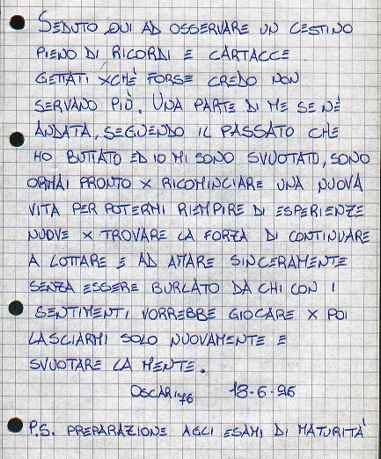 SEDUTO QUI AD OSSERVARE UN CESTINO
PIENO DI RICORDI E CARTACCE
GETTATI XCHÈ FORSE CREDO NON
SERVANO PIÙ. UNA PARTE DI ME SE NÈ
ANDATA, SEGUENDO IL PASSATO CHE
HO BUTTATO ED IO MI SONO SVUOTATO, SONO
ORMAI PRONTO X RICOMINCIARE UNA NUOVA
VITA PER POTERMI RIEMPIRE DI ESPERIENZE
NUOVE X TROVARE LA FORZA DI CONTINUARE
A LOTTARE E AD AMARE SINCERAMENTE
SENZA ESSERE BURLATO DA CHI CON I
SENTIMENTI VORREBBE GIOCARE X POI
LASCIARMI SOLO NUOVAMENTE E
SVUOTARE LA MENTE.
OSCAR176 18-6-96
P.S. PREPARAZIONE AGLI ESAMI DI MATURITÀ